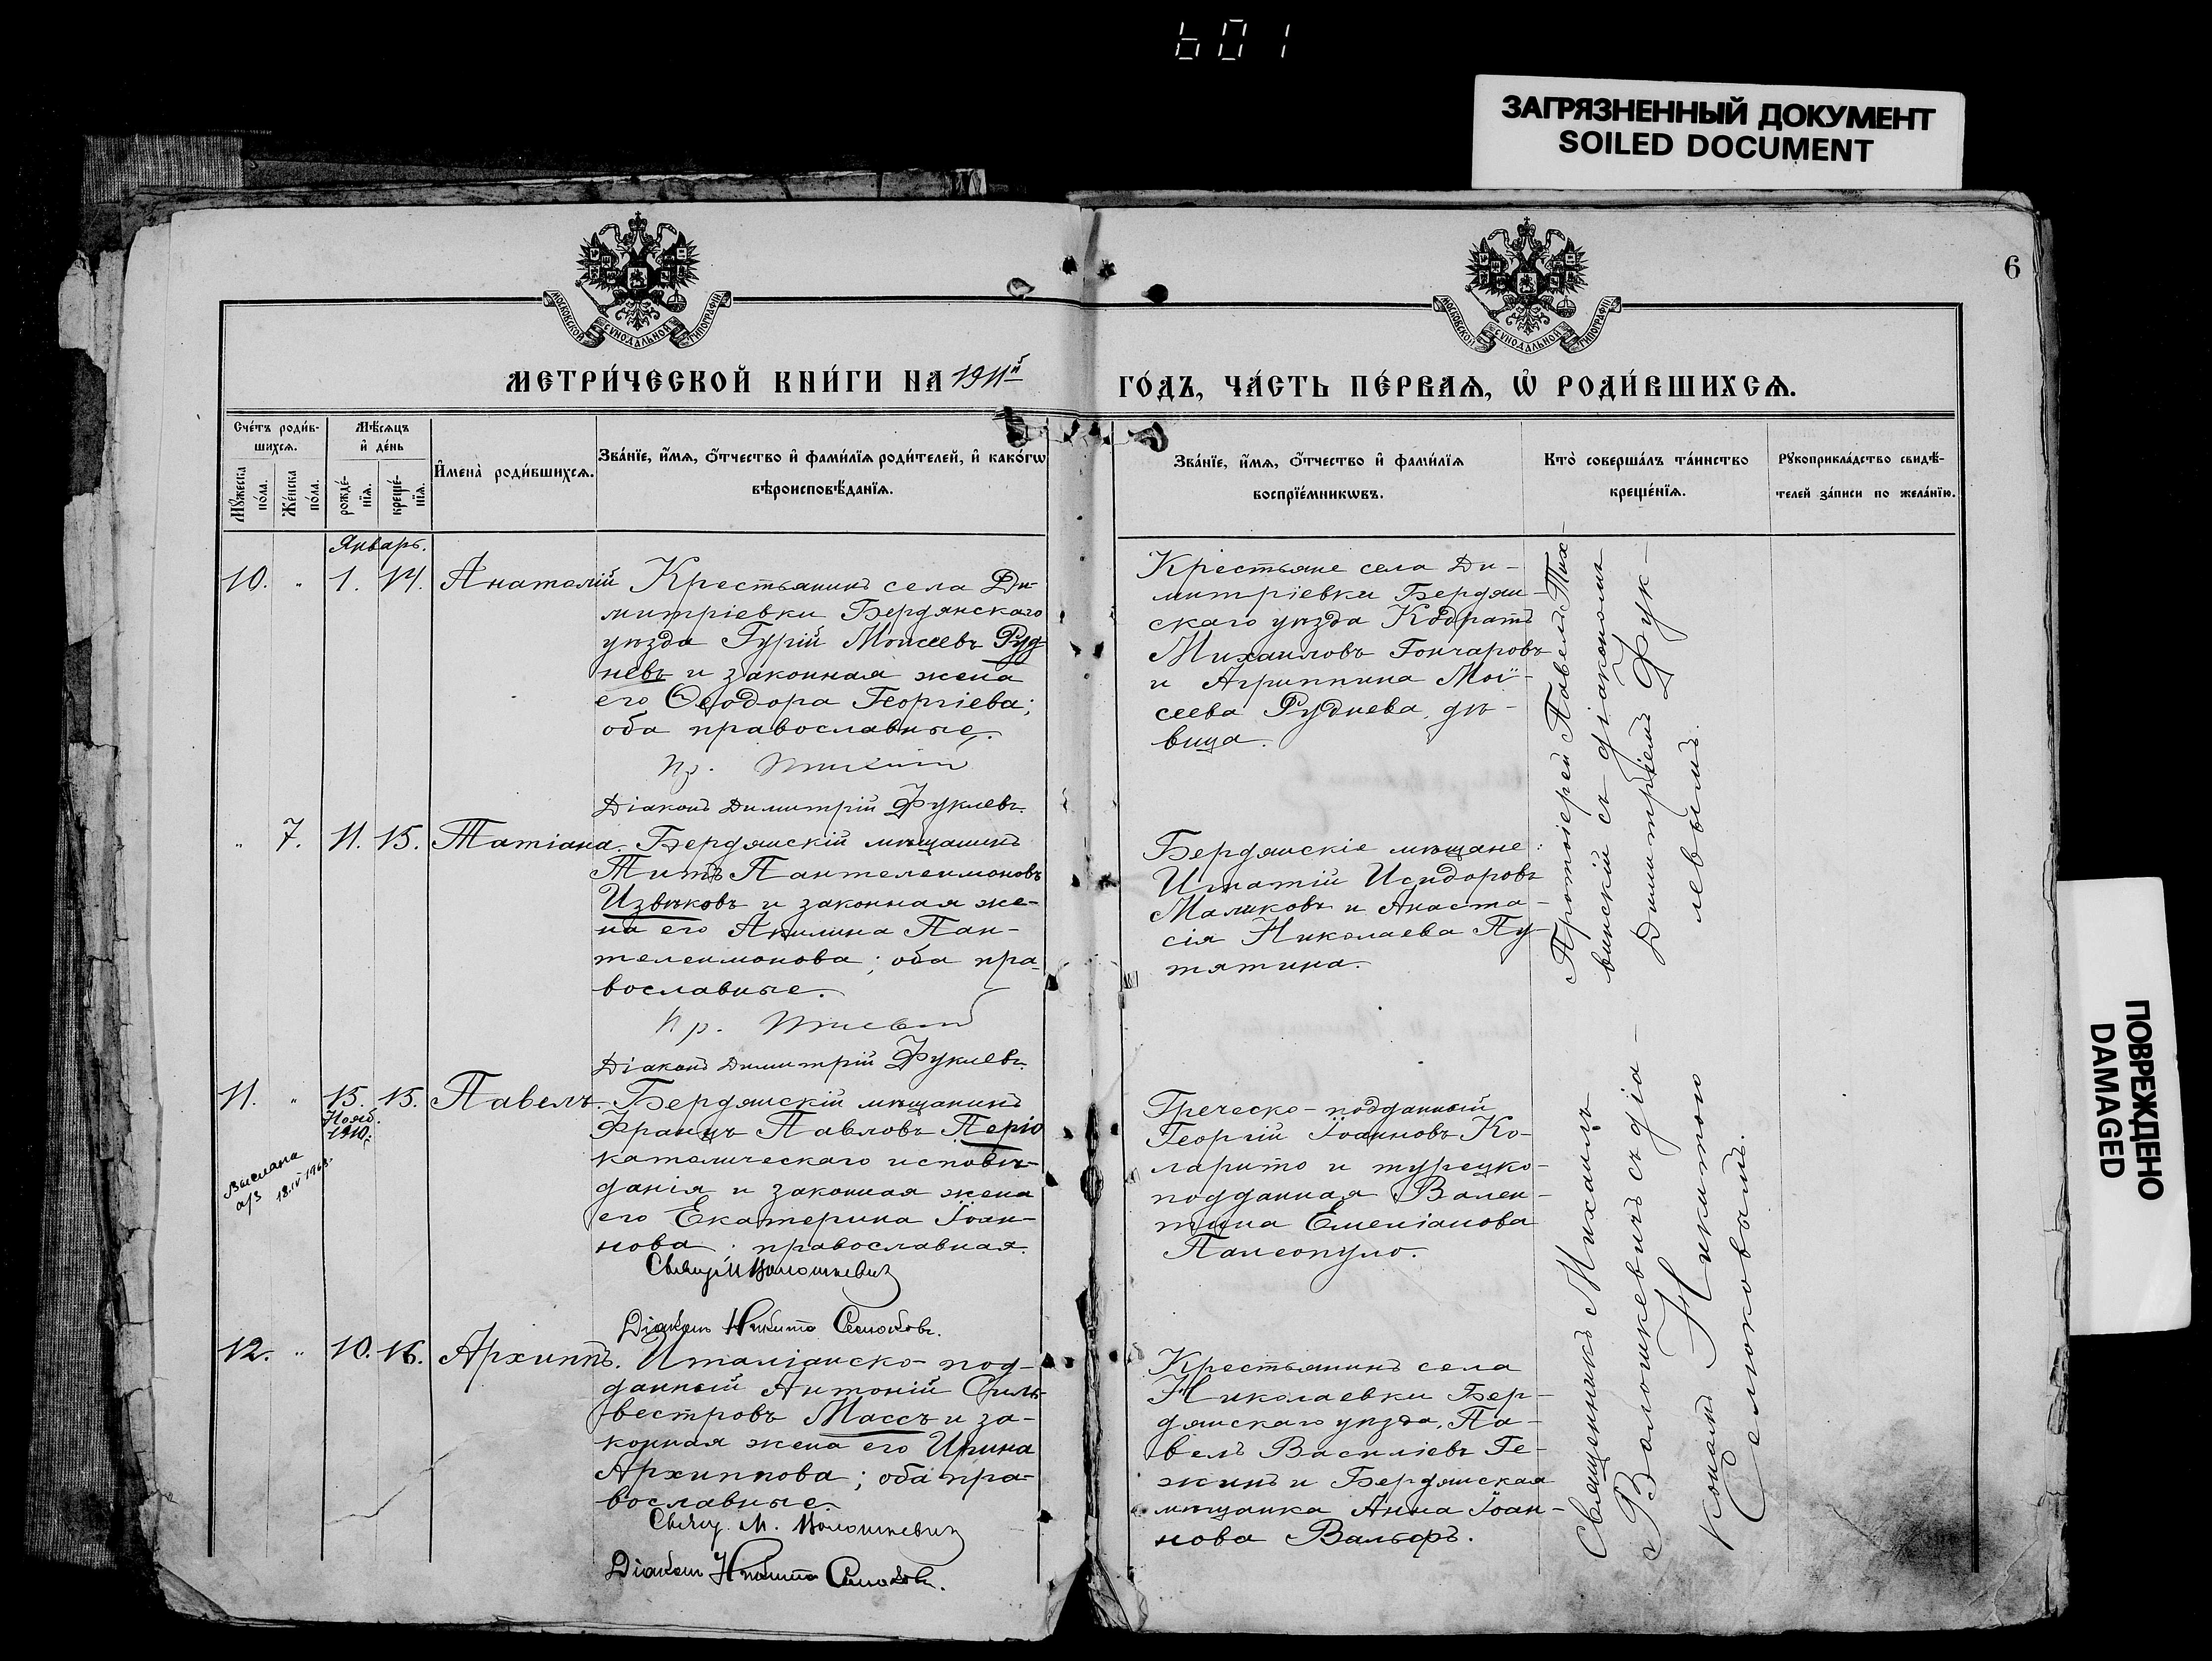 601
ЗАГРЯЗНЕННЫЙ ДОКУМЕНТ
SOILED DOCUMENT
6
МОСКОВСКОЙ СѴНОДАЛЬНОЙ ТИПОГРАФІИ
МОСКОВСКОЙ СѴНОДАЛЬНОЙ ТИПОГРАФІИ
МЕТРИ́ЧЕСКОЙ КНИ́ГИ НА 1911й
ГО́ДЪ, ЧА́СТЬ ПЕ́РВАѦ, Ѡ РОДИ́ВШИХСѦ.
Сче́тъ роди́в-
шихсѧ.
Мꙋ́жеска по́ла.
Же́нска по́ла.
Мѣ́сѧцъ
и҆ де́нь
рожде́-
нїѧ.
креще́-
нїѧ.
И҆мена̀ роди́вшихсѧ.
Зва́нїе, и҆́мѧ, ѻ҆́тчество и҆ фами́лїѧ роди́телей, и҆ како́гѡ
вѣроисповѣ́данїѧ.
Зва́нїе, и҆́мѧ, ѻ҆́тчество и҆ фами́лїѧ
воспрїе́мникѡвъ.
Кто̀ соверша́лъ та́инство
креще́нїѧ.
Рꙋкоприкла́дство свидѣ́-
телей за́писи по жела́нїю.
Январь.
10. „ 1. 14. Анатолій
Крестьянинъ села Ди-
митріевки Бердянскаго
уѣзда Гурій Моисеевъ Руд-
невъ и законная жена
его Ѳеодора Георгіева;
оба православные.
Діаконъ Димитрій Фуклевъ.
Крестьяне села Ди-
митріевки Бердян-
скаго уѣзда Кодратъ
Михаиловъ Гончаровъ
и Агриппина Мої-
сеева Руднева, дѣ-
вица.
Протоіерей Павелъ Тих-
винскій съ діакономъ
Димитріемъ Фук-
левымъ.
„ 7. 11. 15. Татіана.
Бердянскій мѣщанинъ
Титъ Пантелеимоновъ
Извѣковъ и законная же-
на его Акилина Пан-
телеимонова; оба пра-
вославные.
Діаконъ Димитрій Фуклевъ.
Бердянскіе мѣщане:
Игнатій Исидоровъ
Маликовъ и Анаста-
сія Николаева Пу-
тятина.
11. „ 15. 15. Павелъ.
Нояб.
1910.
Выслана
а/з 18.IV 1963.
Бердянскій мѣщанинъ
Францъ Павловъ Періо
католическаго исповѣ-
данія и законная жена
его Екатерина Іоан-
нова; православная.
Свящ. М Волошкевичъ
Діаконъ Никита Селюковъ.
Греческо-подданный
Георгій Іоанновъ Ко-
ларито и турецко-
подданная Вален-
тина Емеліанова
Палеопуло.
Священникъ Михаилъ
Волошкевичъ съ діа-
кономъ Никитою
Селюковымъ.
12. „ 10. 16. Архиппъ.
Италіанско-под-
данный Антоній Силь-
вестровъ Массъ и за-
конная жена его Ирина
Архиппова; оба пра-
вославные.
Свящ. М. Волошкевичъ
Діаконъ Никита Селюковъ.
Крестьянинъ села
Николаевки Бер-
дянскаго уѣзда, Па-
велъ Василіевъ Ге-
жинъ и Бердянская
мѣщанка Анна Іоан-
нова Вальфъ.
ПОВРЕЖДЕНО
DAMAGED